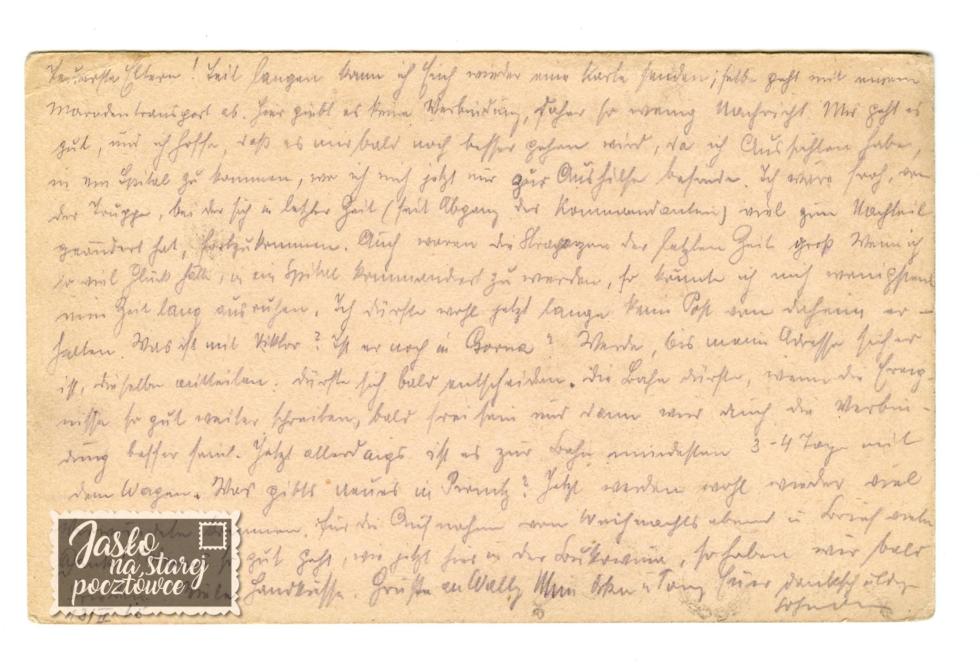 Teuerste Eltern! Seit langem kann ich Euch wieder eine Karte senden; selbe geht mit einem
Marodentransport ab. Hier giebt es keine Verbindung, daher so wenig Nachricht. Mir geht es
gut, und ich hoffe, daß es mir bald noch besser gehen wird, da ich Aussichten habe,
in ein Spital zu kommen, wo ich mich jetzt nur zur Aushilfe befinde. Ich wäre froh, von
der Truppe, bei der sich in letzter Zeit (seit Abgang des Kommandanten) viel zum Nachteil
geändert hat, fortzukommen. Auch waren die Strapazen der letzten Zeit groß. Wenn ich
so viel Glück hätte, in ein Spital kommandiert zu werden, so könnte ich mich wenigstens
eine Zeit lang ausruhen. Ich dürfte wohl jetzt lange keine Post von daheim er-
halten. Was ist mit Viktor? Ist er noch in Gorna? Werde, bis meine Adresse sicher
ist, dieselbe mitteilen. Dürfte sich bald entscheiden. Die Bahn dürfte, wenn die Ereig-
nisse so gut weiter schreiten, bald frei sein und dann wird auch die Verbin-
dung besser sein. Jetzt allerdings ist es zur Bahn mindestens 3-4 Tage mit
dem Wagen. Was gibts neues in Pernitz? Jetzt werden wohl wieder viel
kommen. Für die Aufnahmen vom Weihnachtsabend u. Brief viele
so gut geht, wie jetzt hier in der Bukowina, so haben wir bald
Handküsse. Grüße an Wally Euer dankschuldig
Sohn
Jasło
na starej
pocztówce